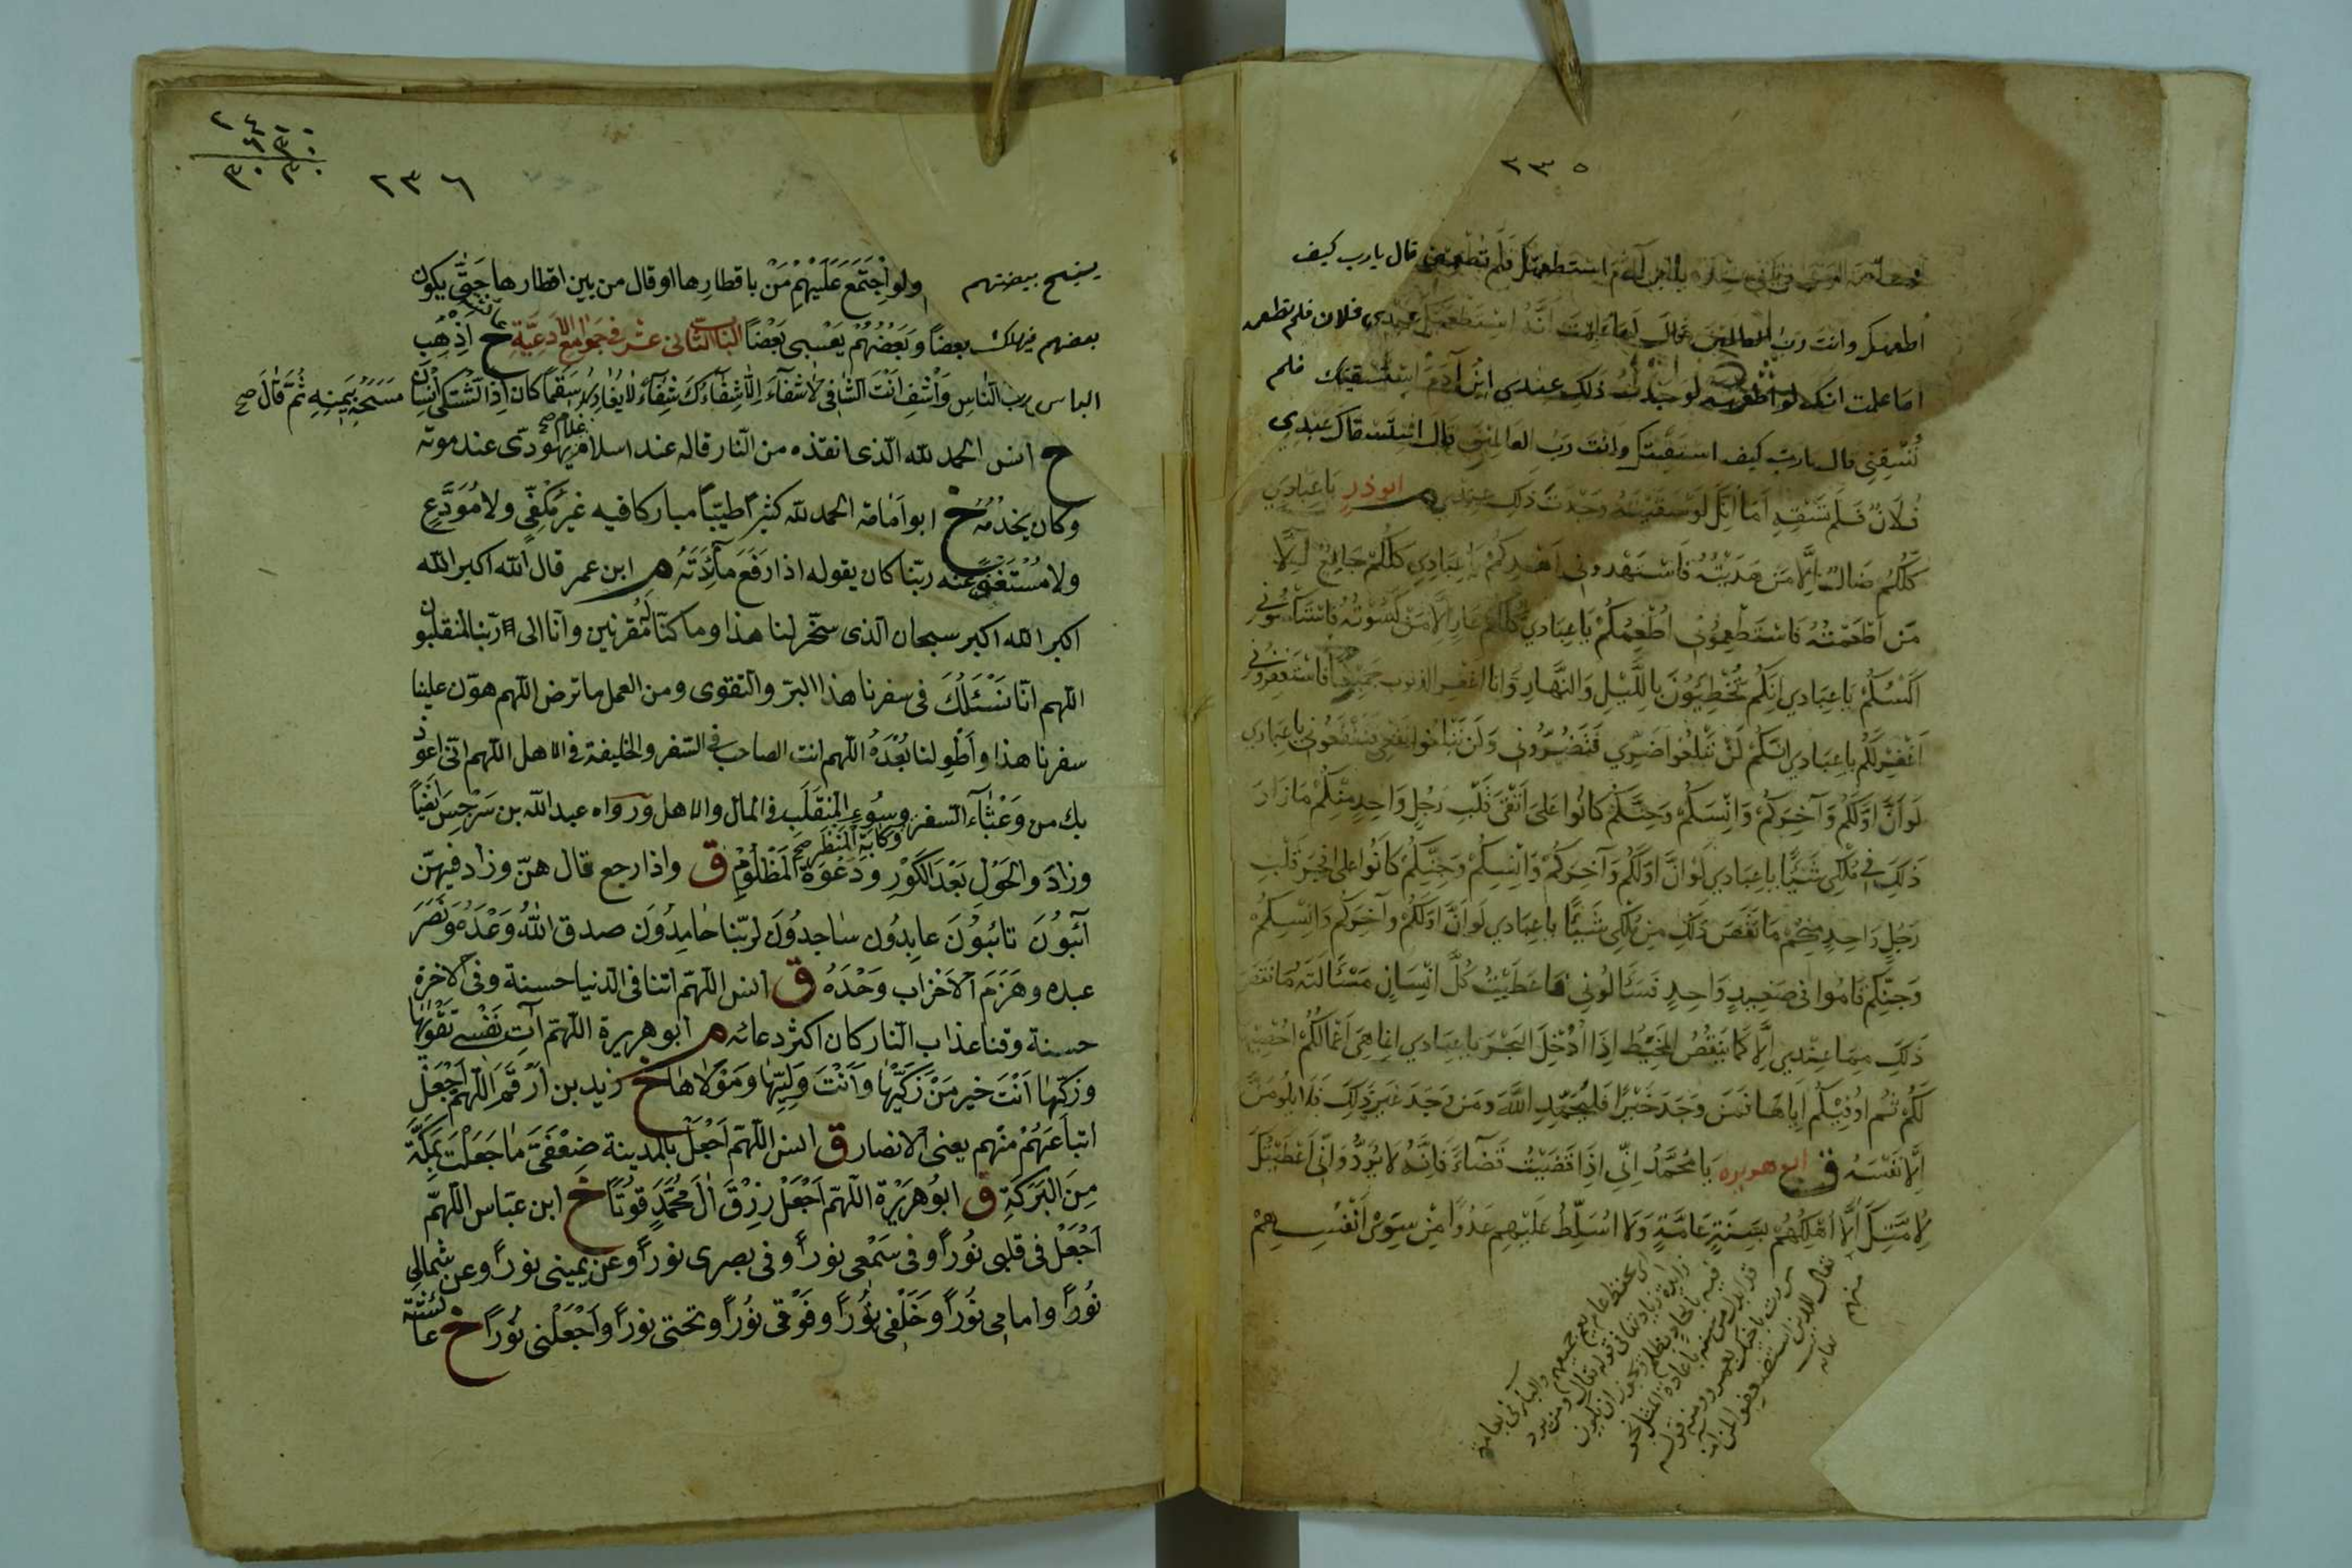 ٢٣٥
يا ابن آدم استطعمتك فلم تطعمني قال يا رب كيف
اطعمك وانت رب العالمين قال اما علمت انه استطعمك عبدي فلان فلم تطعمه
اما علمت انك لو اطعمته لوجدت ذلك عندي يا ابن آدم استسقيتك فلم
تسقني قال يا رب كيف اسقيك وانت رب العالمين قال استسقاك عبدي
فُلَانٌ فَلَمْ تَسْقِهِ أَمَا اِنَّكَ لَوْ سَقَيْتَهُ وَجَدْتَ ذَلِكَ عِنْدِي م ابوذر يَا عِبَادِي
كُلُّكُمْ ضَالٌّ اِلَّا مَنْ هَدَيْتُهُ فَاسْتَهْدُونِي اَهْدِكُمْ يَا عِبَادِي كُلُّكُمْ جَائِعٌ اِلَّا
مَنْ اَطْعَمْتُهُ فَاسْتَطْعِمُونِي اُطْعِمْكُمْ يَا عِبَادِي كُلُّكُمْ عَارٍ اِلَّا مَنْ كَسَوْتُهُ فَاسْتَكْسُونِي
اَكْسُكُمْ يَا عِبَادِي اِنَّكُمْ تُخْطِئُونَ بِاللَّيْلِ وَالنَّهَارِ وَانا اغفر الذنوب جميعا فَاسْتَغْفِرُونِي
اَغْفِرْ لَكُمْ يا عِبَادِي اِنَّكُمْ لَنْ تَبْلُغُوا ضَرِّي فَتَضُرُّونِي وَلَنْ تَبْلُغُوا نَفْعِي فَتَنْفَعُونِي يا عِبَادِي
لَوْ اَنَّ اَوَّلَكُمْ وَآخِرَكُمْ وَاِنْسَكُمْ وَجِنَّكُمْ كانُوا عَلَى اَتْقَى قَلْبِ رَجُلٍ وَاحِدٍ مِنْكُمْ مَا زَادَ
ذَلِكَ فِي مُلْكِي شَيْئًا يا عِبَادِي لَوْ اَنَّ اَوَّلَكُمْ وَآخِرَكُمْ وَاِنْسَكُمْ وَجِنَّكُمْ كَانُوا على افجر قَلْبِ
رَجُلٍ وَاحِدٍ مِنْكُمْ مَا نَقَصَ ذَلِكَ مِنْ مُلْكِي شَيْئًا يا عِبَادِي لَوْ اَنَّ اَوَّلَكُمْ وآخِرَكُمْ وَاِنْسَكُمْ
وَجِنَّكُمْ قَامُوا فِي صَعِيدٍ وَاحِدٍ فَسَأَلُونِي فاعطَيْتُ كُلَّ اِنْسَانٍ مَسْأَلَتَهُ مَا نَقَصَ
ذَلِكَ مِمَّا عِنْدِي اِلَّا كَمَا يَنْقُصُ الْمِخْيَطُ اِذَا اُدْخِلَ الْبَحْرَ يا عِبَادِي اِنَّمَا هِيَ اَعْمَالُكُمْ اُحْصِيهَا
لَكُمْ ثُمَّ اُوَفِّيكُمْ اِيَّاهَا فَمَنْ وَجَدَ خَيْرًا فَلْيَحْمَدِ اللَّهَ وَمَنْ وَجَدَ غَيْرَ ذَلِكَ فَلَا يَلُومَنَّ
اِلَّا نَفْسَهُ ق ابو هريرة يَا مُحَمَّدُ اِنِّي اِذَا قَضَيْتُ قَضَاءً فَاِنَّهُ لَا يُرَدُّ وَاِنِّي اَعْطَيْتُكَ
لِاُمَّتِكَ اَلَّا اُهْلِكَهُمْ بِسَنَةٍ عَامَّةٍ وَلَا اُسَلِّطُ عَلَيْهِمْ عَدُوًّا مِنْ سِوَى اَنْفُسِهِمْ
٢٣٦
يستبيح بيضتهم ولو اجْتَمَعَ عَلَيْهِمْ مَنْ باقطارِها او قال من بين اقطارها حَتَّى يكون
بعضهم يهلك بعضاً وَبَعْضُهُمْ يَسْبِى بَعْضاً الباب الثاني عشر في جوامع الأدعية خ عائشة اَذْهِبِ
الباس رب النّاسِ وَاشْفِ اَنْتَ الشّافى لا شفآءَ اِلّا شِفَآؤُكَ شِفَآءً لا يُغَادِرُ سَقَمًا كان اِذا اشْتَكى اِنْسان مَسَحَهُ بِيَمِينِهِ ثُمَّ قَالَ صح
خ انس الحمد لله الّذى انقذه من النّار قاله عند اسلام غلام صح يهودىّ عند موته
وكان يخدمُهُ خ ابو اُمامة الحمد لله كثيراً طيّباً مباركا فيه غيرَ مَكْفِىٍّ ولا مُوَدَّعٍ
ولا مُسْتَغْنًى عنه ربّنا كان يقوله اذا رَفَعَ مآئِدَتَهُ م ابن عمر قال الله اكبر الله
اكبر الله اكبر سبحان الّذى سخّر لنا هذا وما كنّا له مُقْرنين وانّا الى ربّنا لمنقلبون
اللّهم انّا نَسْئَلُكَ فى سفرنا هذا البرّ والتقوى ومن العمل ما ترض اللّهم هوّن علينا
سفرنا هذا واَطْوِ لنا بُعْدَهُ اللّهم انت الصاحب فى السّفر والخليفة فى الاهل اللّهم انّى اعوذ
بك من وَعْثآءِ السّفر وكآبَةِ المَنْظَرِ صح وسُوءِ المُنْقَلَبِ فى المال والاهل ورواه عبد الله بن سَرْجِسَ ايضاً
وزادَ والحَوْلِ بَعْدَ الكَوْرِ ودَعْوَةَ المَظْلُومِ ق واذا رجع قال هنّ وزاد فيهنّ
آئِبُونَ تائبُونَ عابِدُون ساجِدُونَ لربّنا حامِدُونَ صدق اللهُ وَعْدَهُ وَنَصَرَ
عبده وهَزَمَ الاَحْزاب وَحْدَهُ ق انس اللّهمّ اتنا فى الدّنيا حسنة وفى الآخرة
حسنة وقنا عذاب النّار كان اكثر دعائه م ابو هريرة اللّهمّ آتِ نَفْسى تَقْوٰيها
وزَكّها اَنْتَ خير مَنْ زَكّيها وَاَنْتَ وَلِيّها ومَوْلاها خ زيد بن اَرْقَمَ اللّهمّ اجْعَلْ
اتباعَهُمْ منهم يعنى الانصار ق انس اللّهمّ اجْعَلْ بالمدينة ضِعْفَىْ ما جَعَلْتَ بمَكَّةَ
مِنَ البَرَكَةِ ق ابُو هرَيْرَة اللّهمّ اجْعَلْ رِزْقَ الِ مُحَمَّدٍ قُوتاً خ ابن عبّاس اللّهمّ
اجْعَلْ فى قلبى نُوراً وفى سَمْعى نوراً وفى بصرى نوراً وعن يمينى نوراً وعن شمالى
نُوراً وامامى نُوراً وخَلْفى نُوراً وفَوْقى نُوراً وتحتى نوراً واجْعَلْنى نُوراً خ عائشة